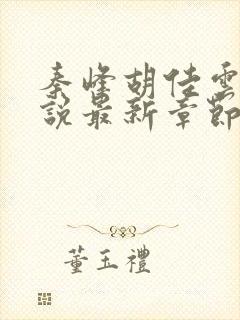 秦峰胡佳雲
說最新章節
董玉禮